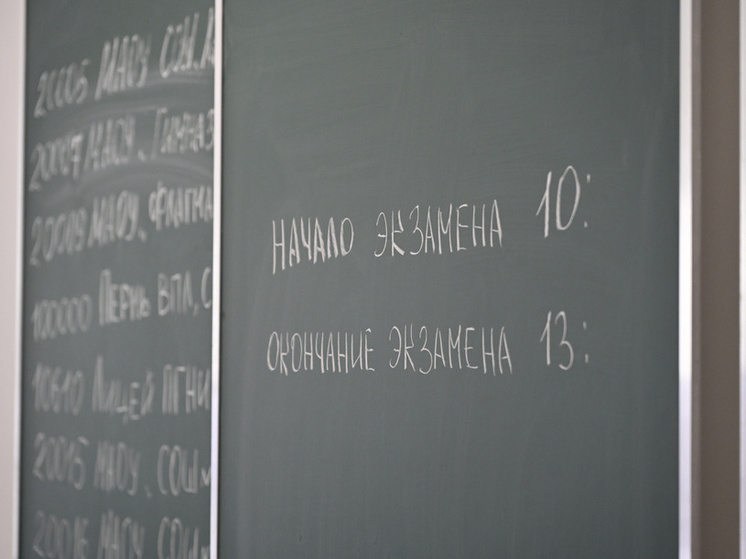 20005 МАОУ СОШ
МАОУ, Гимназ
20009 МАОУ, Флагма
100000 Пермь ВПЛ, С
10610 Лицей ПГНИ
20015 МАОУ, СОШ
20016 МАОУ СОШ
НАЧАЛО ЭКЗАМЕНА 10:
ОКОНЧАНИЕ ЭКЗАМЕНА 13: